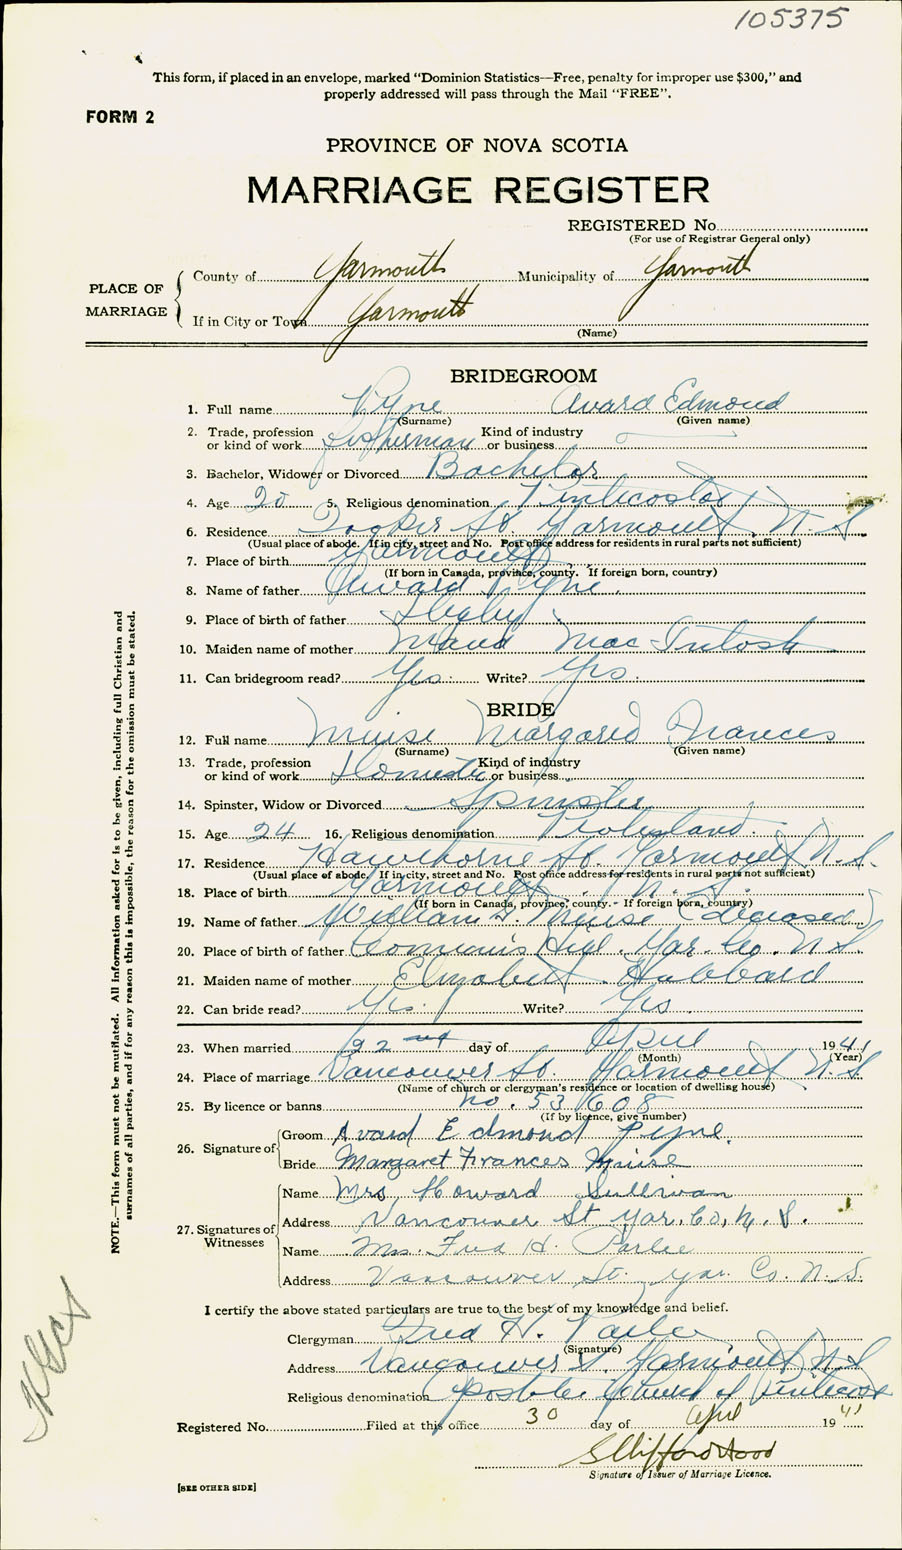 105375
This form, if placed in an envelope, marked "Dominion Statistics—Free, penalty for improper use $300," and
properly addressed will pass through the Mail "FREE".
FORM 2
PROVINCE OF NOVA SCOTIA
MARRIAGE REGISTER
REGISTERED No.
(For use of Registrar General only)
PLACE OF MARRIAGE
County of Yarmouth Municipality of Yarmouth
If in City or Town Yarmouth
(Name)
BRIDEGROOM
1. Full name Pyne Avard Edmond
(Surname) (Given name)
2. Trade, profession or kind of work Fisherman Kind of industry or business
3. Bachelor, Widower or Divorced Bachelor
4. Age 20 5. Religious denomination Pentecostal
6. Residence Yarmouth, N.S.
(Usual place of abode. If in city, street and No. Post office address for residents in rural parts not sufficient)
7. Place of birth Yarmouth
(If born in Canada, province, county. If foreign born, country)
8. Name of father Avard Pyne.
9. Place of birth of father Digby
10. Maiden name of mother Maud MacIntosh
11. Can bridegroom read? Yes. Write? Yes.
BRIDE
12. Full name Muise Margaret Frances
(Surname) (Given name)
13. Trade, profession or kind of work Domestic Kind of industry or business
14. Spinster, Widow or Divorced Spinster
15. Age 24 16. Religious denomination Protestant.
17. Residence Hawthorne St. Yarmouth N.S.
(Usual place of abode. If in city, street and No. Post office address for residents in rural parts not sufficient)
18. Place of birth Yarmouth. N.S.
(If born in Canada, province, county. - If foreign born, country)
19. Name of father William Muise (deceased)
20. Place of birth of father Yar. Co. N.S.
21. Maiden name of mother Elizabeth Hubbard
22. Can bride read? Yes. Write? Yes.
23. When married 22nd day of April 1941
(Month) (Year)
24. Place of marriage Vancouver St. Yarmouth N.S.
(Name of church or clergyman's residence or location of dwelling house)
25. By licence or banns no. 53608
(If by licence, give number)
26. Signature of
Groom Avard Edmond Pyne.
Bride Margaret Frances Muise
27. Signatures of Witnesses
Name Mrs Howard Sullivan
Address Vancouver St Yar. Co, N. S.
Name Mrs. Fred H. Parlee
Address Vancouver St. Yar. Co. N.S.
I certify the above stated particulars are true to the best of my knowledge and belief.
Clergyman Fred H. Parlee
(Signature)
Address Vancouver St. Yarmouth N.S.
Religious denomination Apostolic Church of Pentecost
Registered No. Filed at this office 30 day of April 1941
S Clifford Hood
Signature of Issuer of Marriage Licence.
[SEE OTHER SIDE]
NOTE.—This form must not be mutilated. All information asked for is to be given, including full Christian and
surnames of all parties, and if for any reason this is impossible, the reason for the omission must be stated.